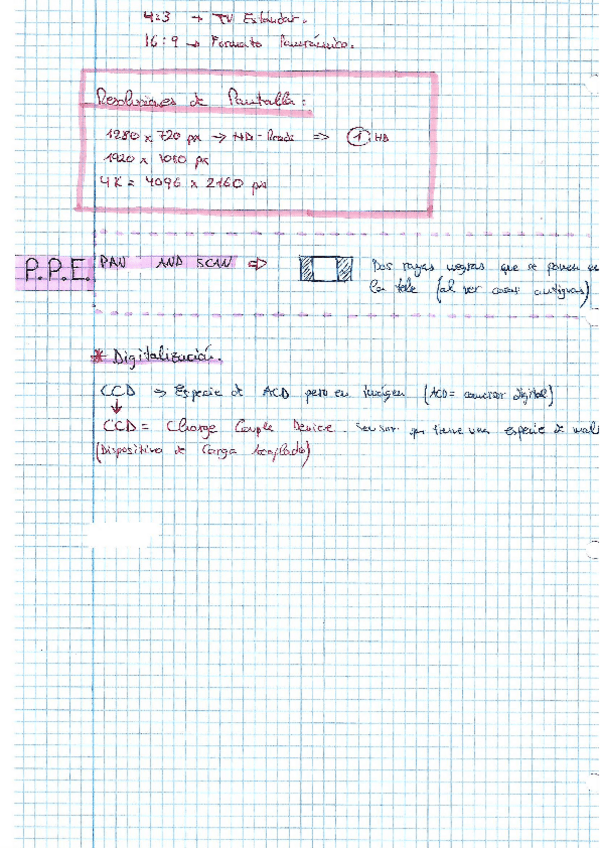 4:3 → TV Estandar.
16:9 → Formato Panorámico.
Resoluciones de Pantalla:
1280 x 720 px → HD-Ready ⇒ 1 HD
1920 x 1080 px
4K = 4096 x 2160 px
P.P.E. PAN AND SCAN ⇒ Dos rayas negras que se ponen en
la tele (al ver cosas antiguas)
* Digitalización.
CCD → Especie de ACD pero en imágen (ACD = conversor digital)
↓
CCD = Charge Couple Device. Sensor que tiene una especie de
(Dispositivo de Carga Acoplado)